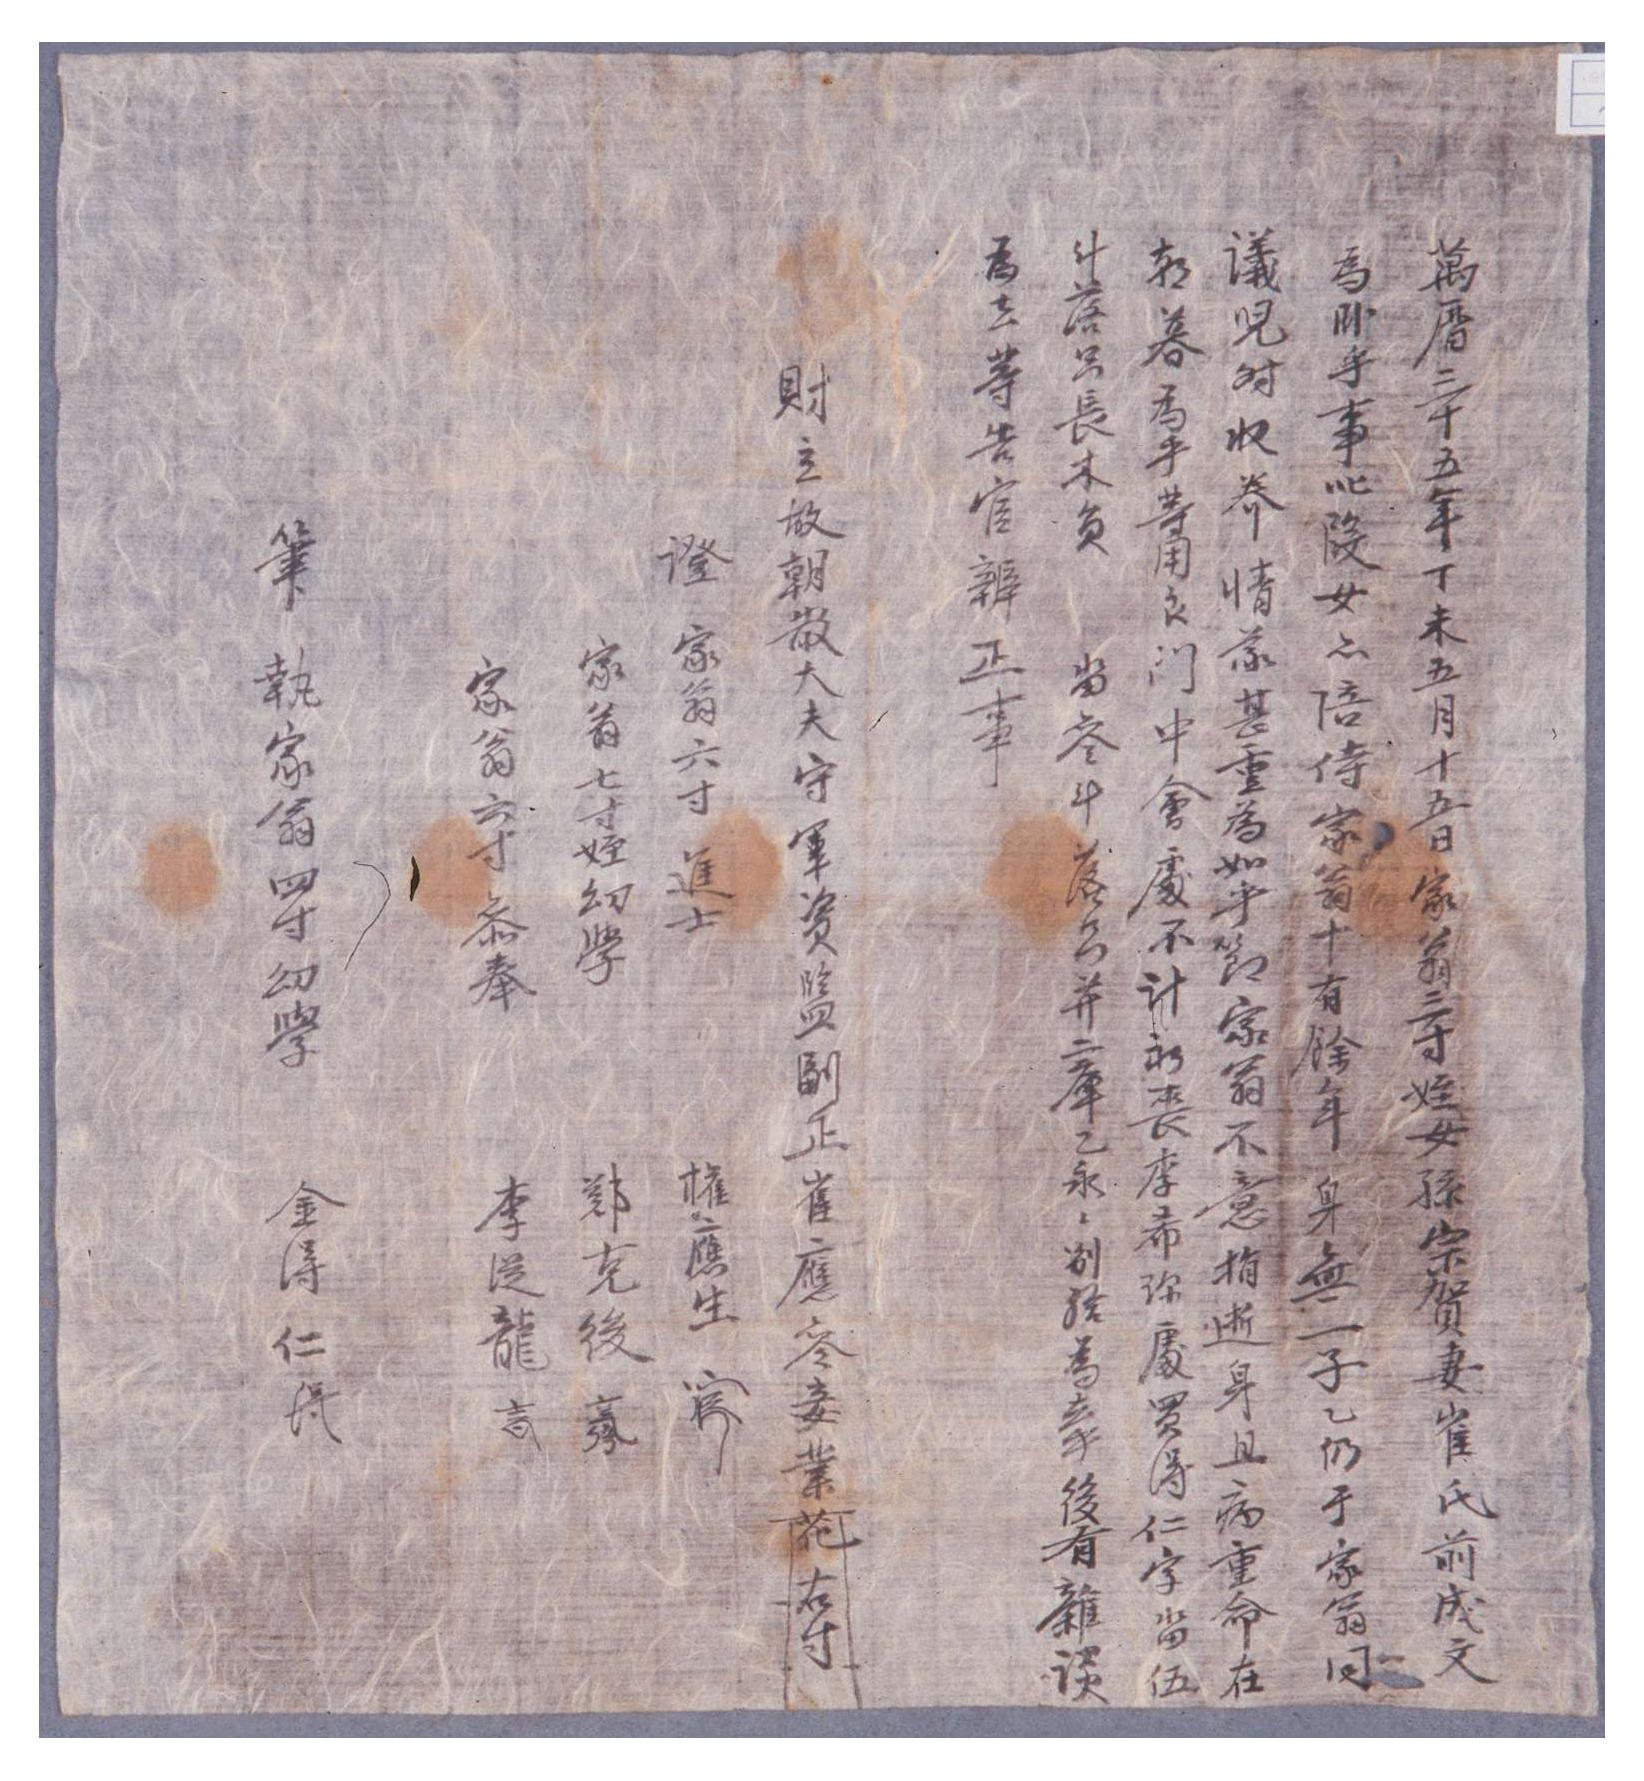 萬曆三十五年丁未五月十五日家翁三寸姪女孫宗賀妻崔氏前成文
爲臥乎事叱段女亦陪侍家翁十有餘年身無一子乙仍于家翁同
議兒時收養情義甚重爲如乎節家翁不意捐逝身且病重命在
朝暮爲乎等用良門中會處不計初喪李希弥處買得仁字畓伍
斗落只長木員 畓叄斗落只幷二庫乙永〻別給爲去乎後有雜談
爲去等告官辨正事
財主故朝散大夫守軍資監副正崔應 妾業花右寸
證 家翁六寸 進士 權應生
家翁七寸姪幼學 鄭克後
家翁六寸叅奉 李從龍
筆執家翁四寸幼學 金得仁